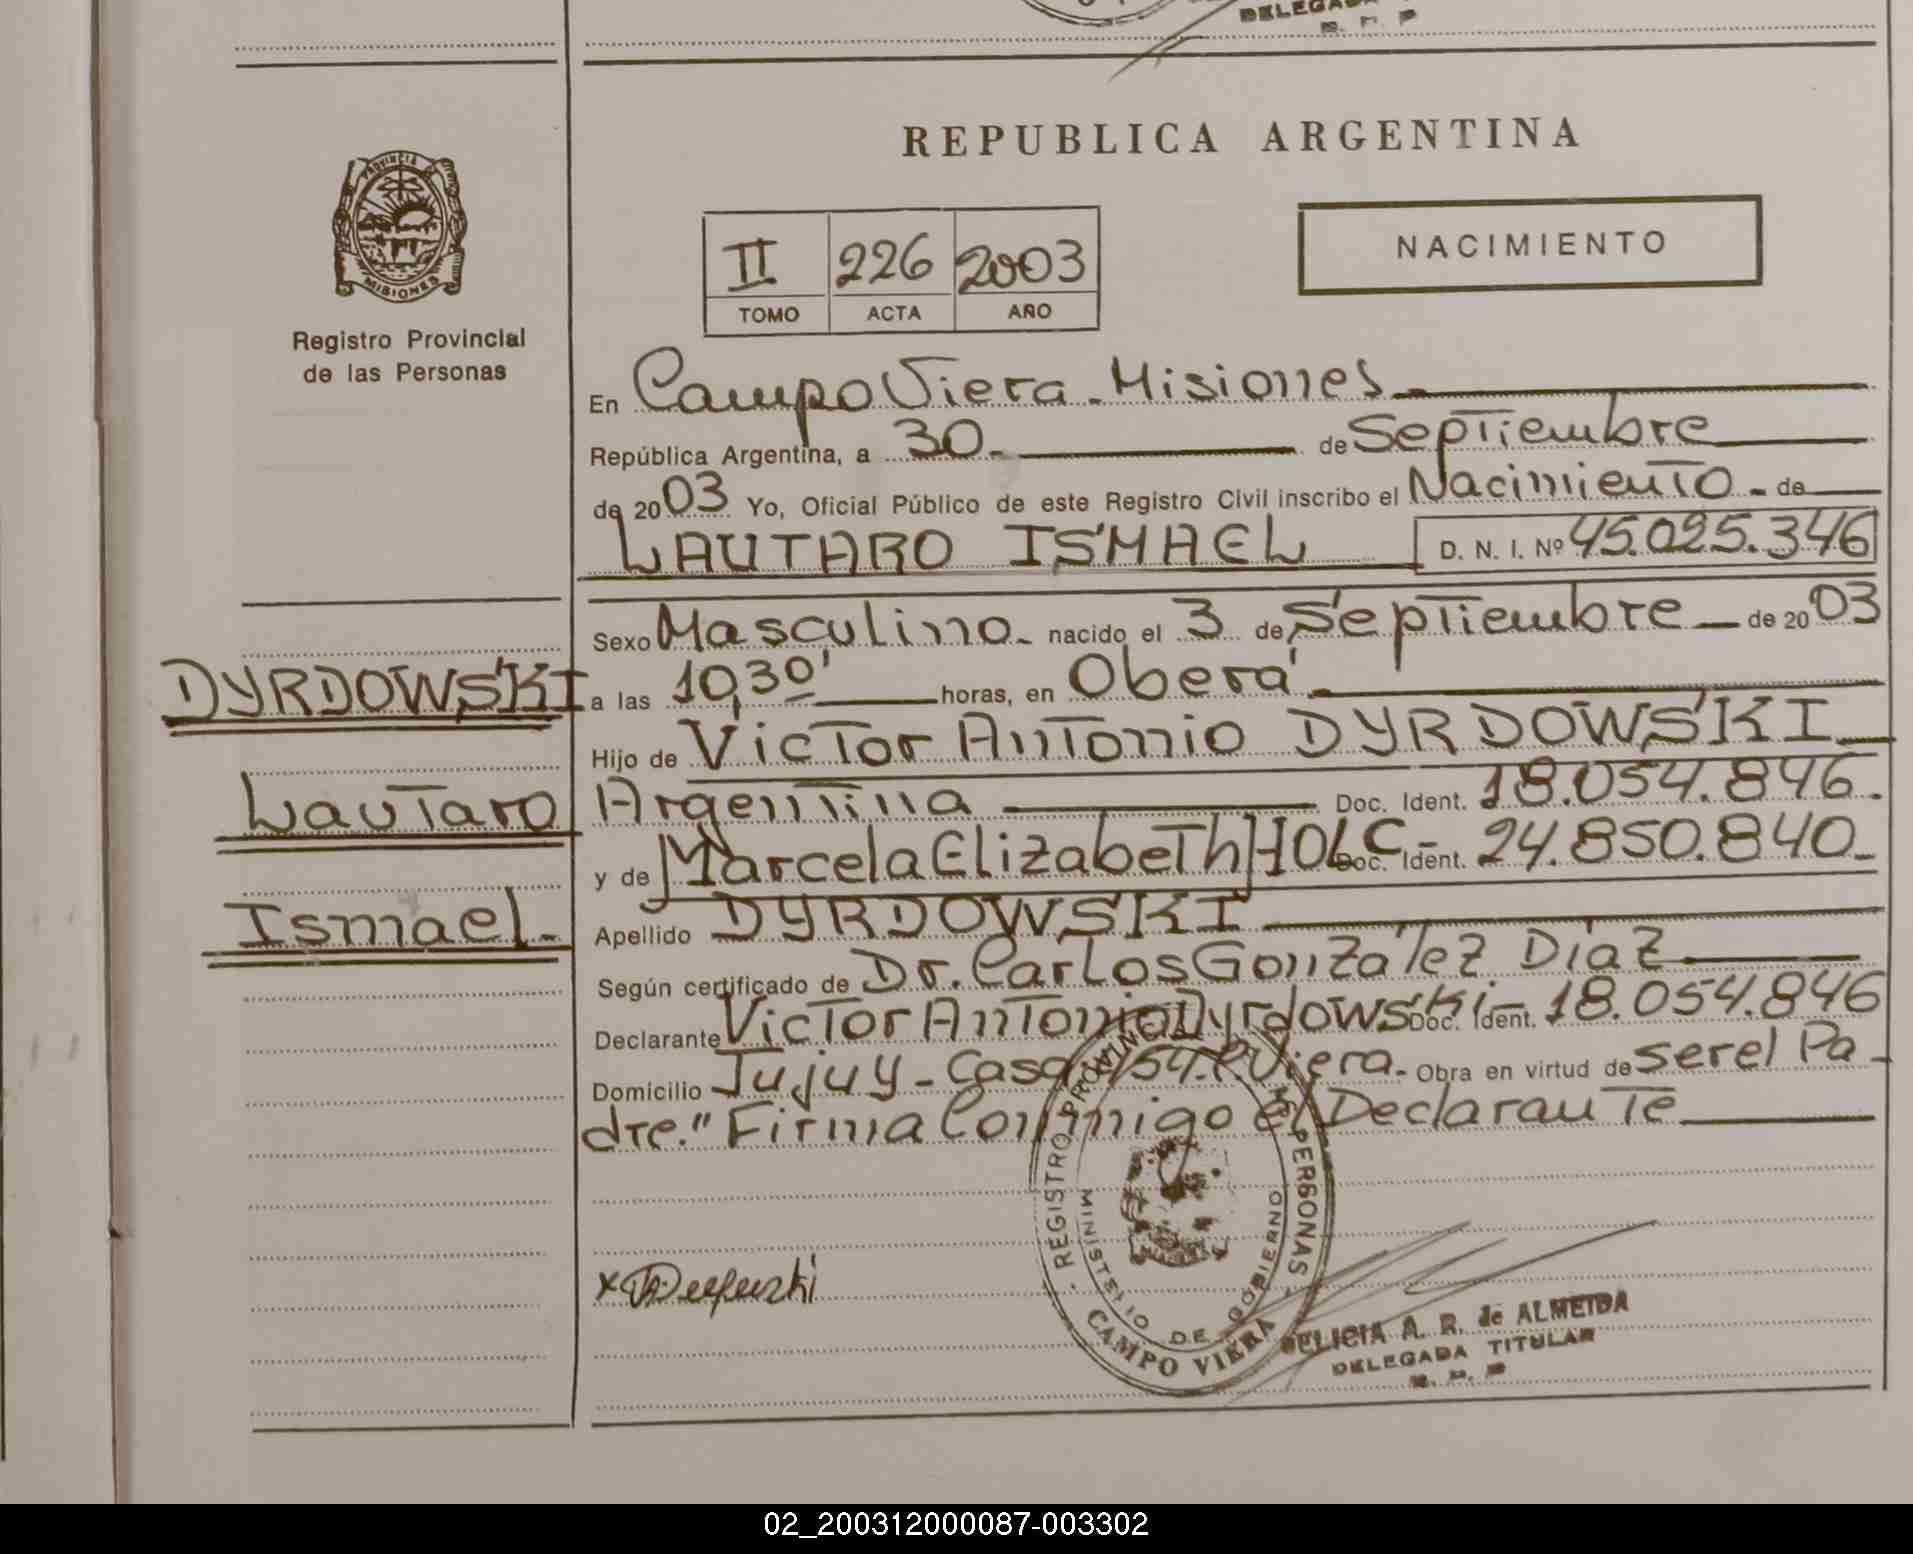 DELEGADA
R. P. P
REPUBLICA ARGENTINA
PROVINCIA DE MISIONES
Registro Provincial
de las Personas
II 226 2003
TOMO ACTA AÑO
NACIMIENTO
En Campo Viera - Misiones
República Argentina, a 30 - de Septiembre
de 2003 Yo, Oficial Público de este Registro Civil inscribo el Nacimiento - de
LAUTARO ISMAEL D. N. I. Nº 45.025.346
Sexo Masculino - nacido el 3 de Septiembre - de 2003
DYRDOWSKI
a las 10,30' horas, en Oberá
Hijo de Victor Antonio DYRDOWSKI
Lautaro
Argentina Doc. Ident. 18.054.846.
y de Marcela Elizabeth HOLC - Doc. Ident. 24.850.840 -
Ismael -
Apellido DYRDOWSKI
Según certificado de Dr. Carlos González Díaz
Declarante Victor Antonio Dyrdowski - Doc. Ident. 18.054.846
Domicilio Jujuy - Casa 154. C. Viera - Obra en virtud de ser el Pa -
dre." Firma Conmigo el Declarante
REGISTRO PROVINCIAL PERSONAS
MINISTERIO DE GOBIERNO
CAMPO VIERA
A. R. de ALMEIDA
DELEGADA TITULAR
R. P. P
02_200312000087-003302